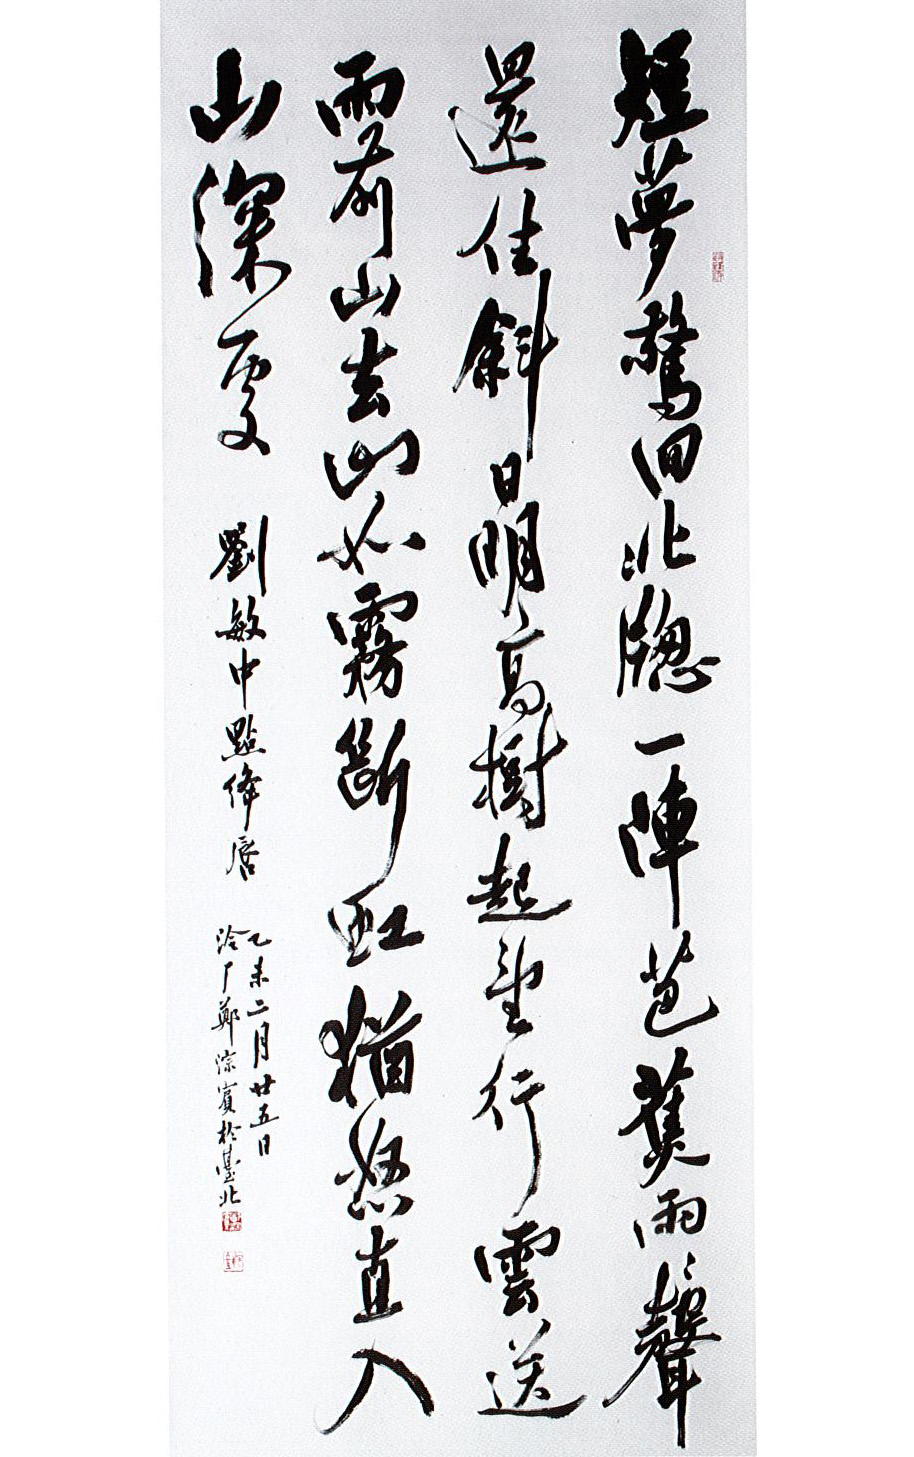 短夢驚回北牕一陣芭蕉雨〻聲
還住斜日明高樹起望行雲送
雨前山去山如霧斷虹猶怒直入
山深處 劉敏中點絳唇
乙未二月廿五日
泠厂鄭淙賓於臺北